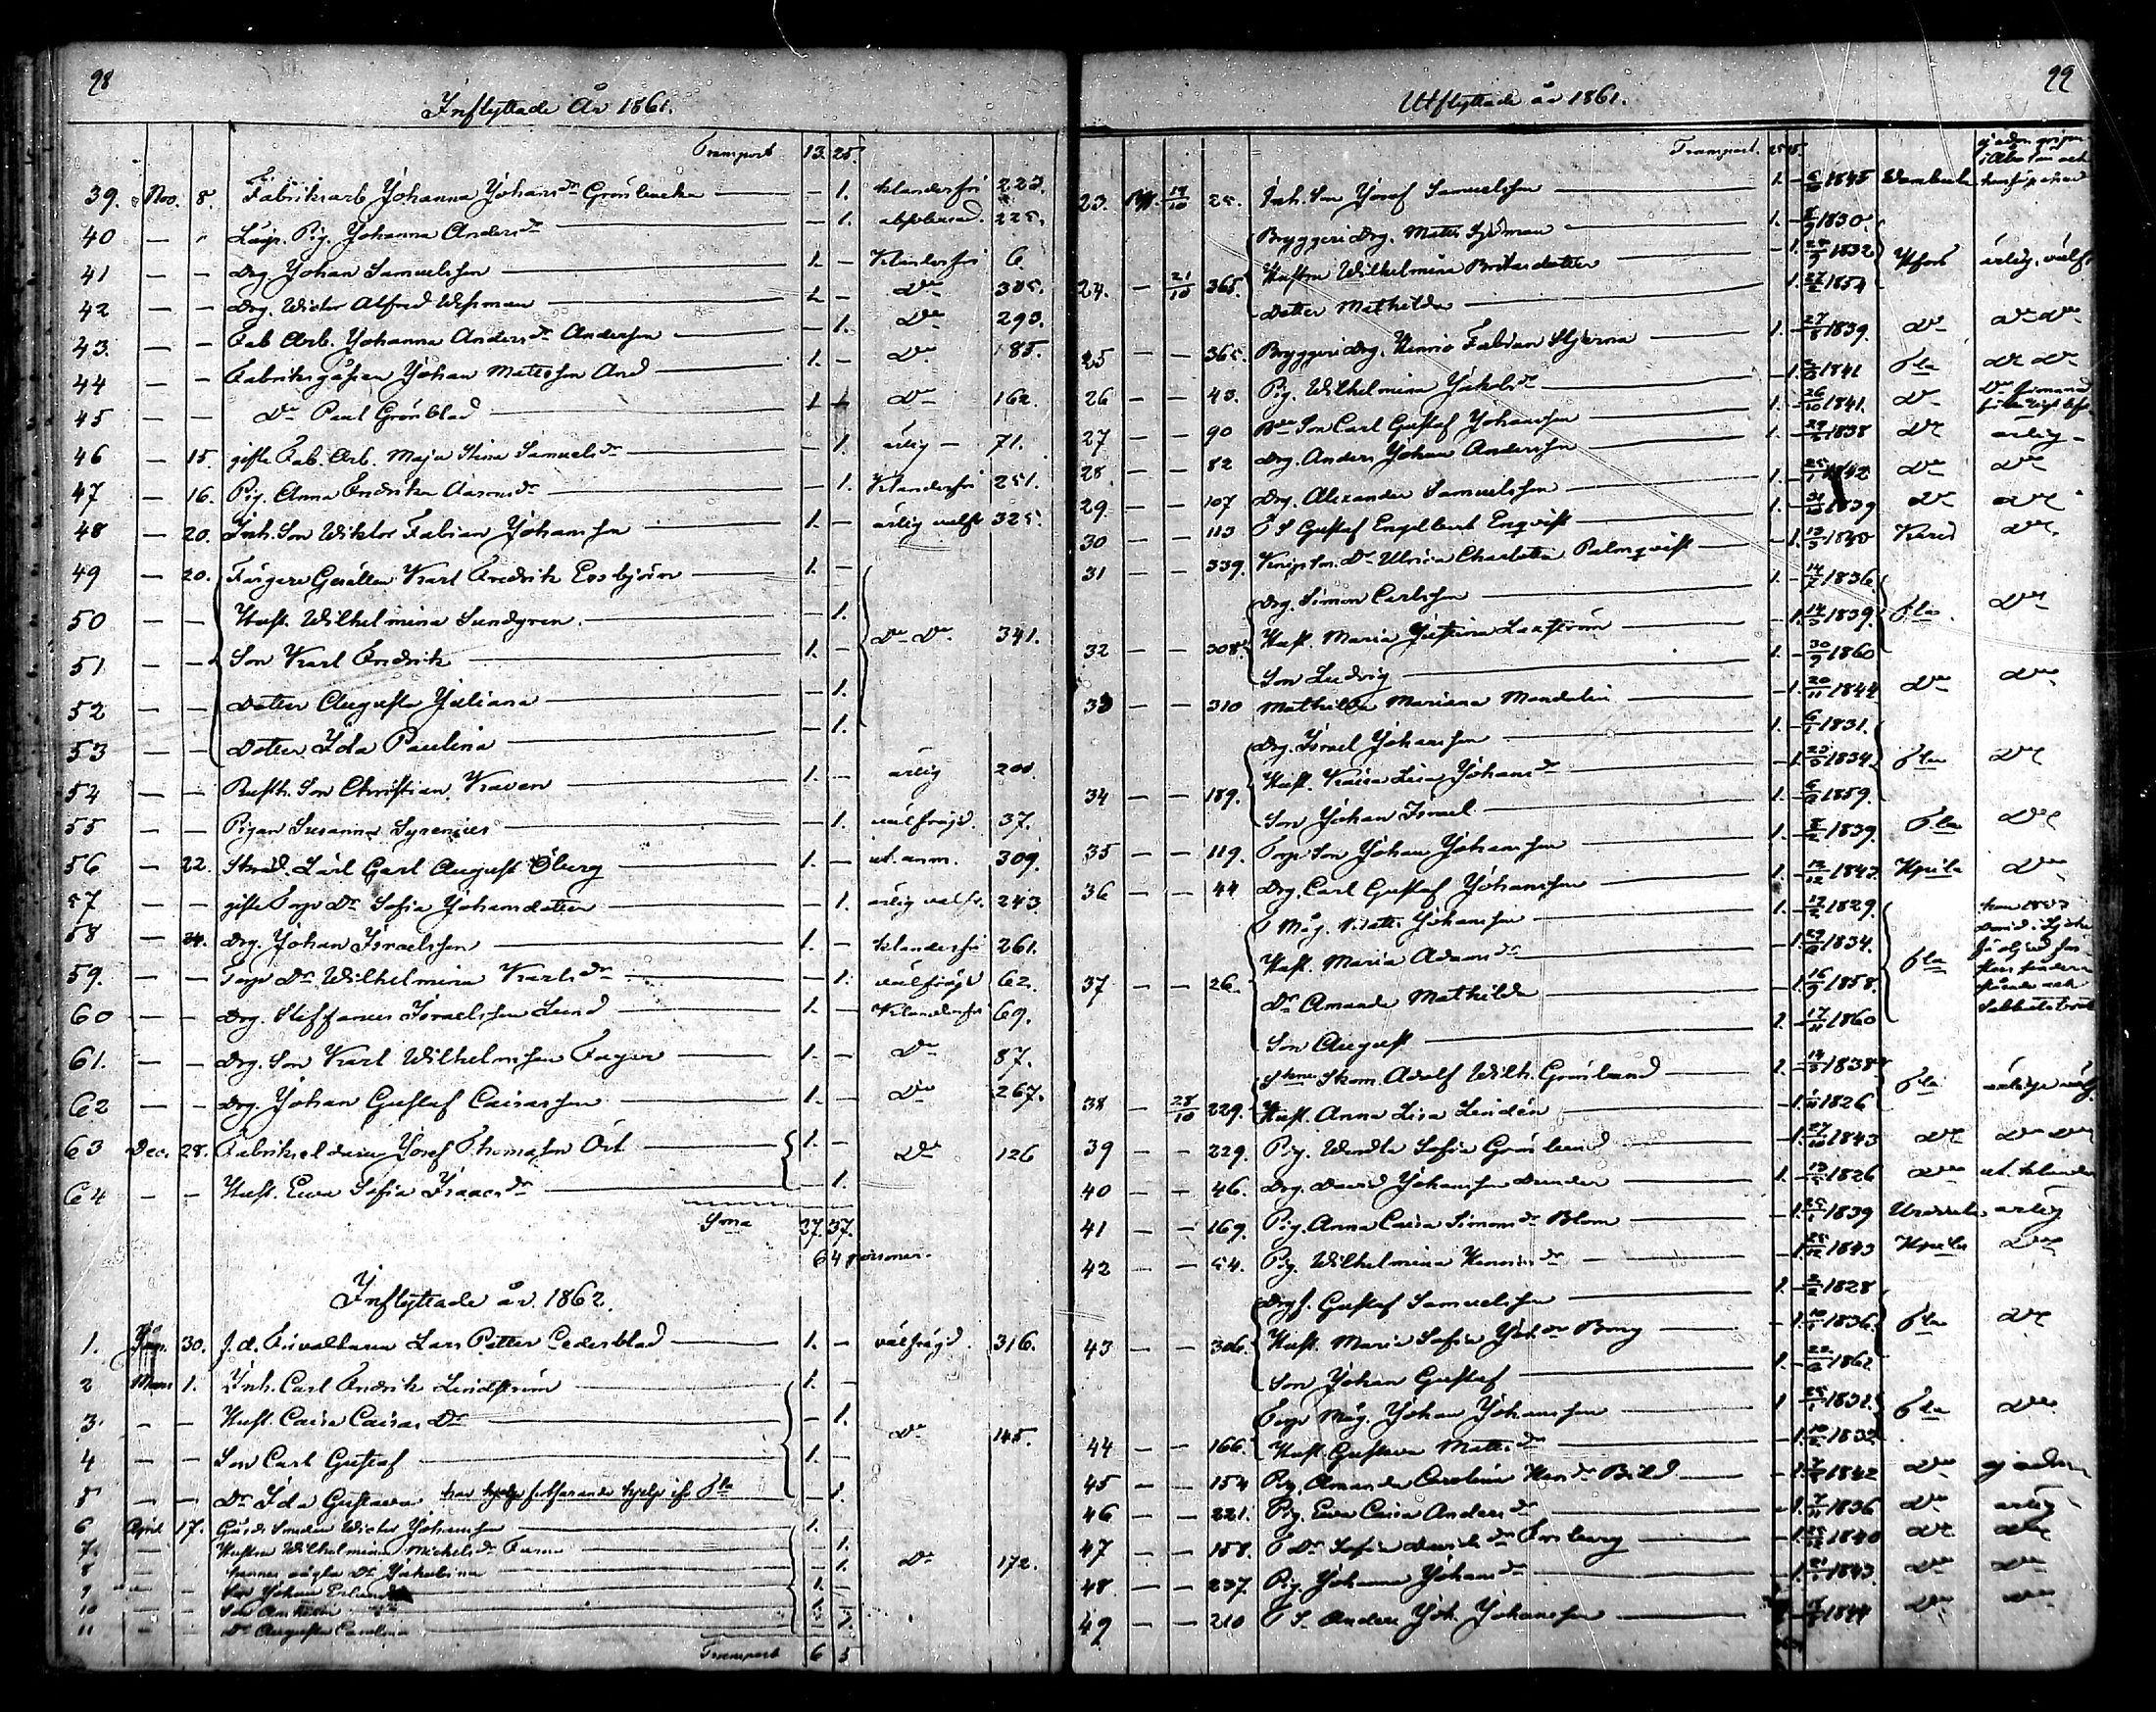 98
Inflyttade År 1861.
Transport 13. 25.
39. Nov. 8. Fabriksarb Johanna Johansdr Grönbacka — 1. klanderfri 223.
40 — " Lösp. Pig. Johanna Andersdr — 1. 225.
41 — — Drg Johan Samuelsson 1. — Klanderfri 6.
42 — — Drg. Victor Alfred Wesman 1. — Do 305.
43. — — Fab Arb. Johanna Andersdr Andersson — 1. Do 293.
44 — — Fabriksgåssen Johan Mattsson And 1. — Do 185.
45 — — Do Paul Grönblad Do 162.
46 — 15. gifta Fab. Arb. Maja Stina Samuelsdr — 1. ärlig — 71.
47 — 16. Pig. Anna Fredrika Aaronsdr — 1. Klanderfri 251.
48 — 20. Inh. Son Wiktor Fabian Johansson 1. — ärlig välfr 325.
49 — 20. Färgare Gesällen Karl Fredrik Essbjörn 1. —
50 — — Hust. Wilhelmina Sundgren. — 1. Do Do 341.
51 — — Son Karl Fredrik 1. —
52 — — Dotter Augusta Juliana — 1.
53 — — Dotter Ida Paulina — 1.
54 — — Rusth. Son Christian Kraven 1. — ärlig 200.
55 — — Pigan Susanna Syrenius — 1. välfrägd. 37.
56 — 22. Skräd. Lärl Carl August Öberg 1. — ut. anm. 309.
57 — — gifta Torp Dr Sofia Johansdotter — 1. ärlig välfr. 243.
58 — 24. Drg. Johan Israelsson 1. — klanderfri 261.
59. — — Torp Dr Wilhelmina Karlsdr — 1. välfrägd 62.
60 — — Drg. Steffanus Israelsson Lund 1. — Klanderfri 69.
61. — — Drg. Son Karl Wilhelmsson Fager 1. — Do 87.
62 — — Drg Johan Gustaf Caisasson 1. — Do 267.
63 Dec. 28. Fabrikseldaren Josef Thomasson Öst 1. — Do 126
64 — — Hust. Ewa Sofia Isaacsdr — 1.
Sma 27. 37.
64 personer.
Inflyttade år 1862.
1. 30. J. d. Förvaltaren Lars Petter Cederblad 1. — välfrägd. 316.
2 Mars 1. Inh. Carl Fredrik Lindström 1. —
3. — — Hust. Caisa Caisas Dr — 1. Do 145.
4 — — Son Carl Gustaf 1. —
5 — — Dr Ida Gustava — 1.
6 April 17. Gårds Smeden Victor Johansson 1. —
7. — Hustru Wilhelmina Michelsdr — 1.
8 — hennes oägta Dr Jakobina — 1. Do 172.
9 — Son Johan Erland 1. —
10 — Son 1. —
11 — Dr Augusta Carolina — 1.
Transport 6 5
99
Utflyttade år 1861.
Transport. 25 15.
23. 14/10 25. Inh. Son Josef Samuelsson 1. — 1845
Bryggeri Drg. Matts Sjöman 1. — 1830.
24. — 21/10 365. Hustru Wilhelmina Britasdotter — 1. 1832 Hfors ärlig, välfr
Dotter Mathilda — 1. 1854
25 — — 365. Bryggeri Drg. Henric Fabian Stjerna 1. — 27/8 1839. Do Do Do
26 — — 43. Pig. Wilhelmina Jakobsdr — 1. 1841 Do Do
27 — — 90 Son Carl Gustaf Johansson 1. — 26/10 1841. Do
28. — — 82 Drg. Anders Johan Andersson 1. — 1838 Do ärlig —
29 — — 107 Drg. Alexander Samuelsson 1. — 1842 Do Do
30 — — 113 T S Gustaf Engelbert Enqvist 1. — 1839 Do Do
31 — — 339. Dr Ulrica Charlotta Palmqvist — 1. Karis Do
Drg. Simon Carlsson 1. — 14/7 1836.
32 — — 308. Hust. Maria Justina Laxström — 1. 1839. Do
Son Ludvig 1. — 30/9 1860
33 — — 310 Mathilda Mariana Mendelin — 1. 20/11 1844 Do Do
Drg. Israel Johansson 1. — 1831.
34 — — 189. Hust. Kaisa Lisa Johansdr — 1. 1834. Do
Son Johan Israel 1. — 1859.
35 — — 119. Torp Son Johan Johansson 1. — 1839. Do
36 — — 44 Drg. Carl Gustaf Johansson 1. — 1843. Do
T Måg. Matts Johansson 1. — 1829.
Hust. Maria Adamsdr — 1. 1834.
37 — — 26. Dr Amanda Mathilda — 1. 16/9 1858.
Son August 1. — 17/11 1860
Skom. Adolf Wilh. Grönlund 1. — 1838
38 — 28/10 229. Hust. Anna Lisa Lindén — 1. 1826
39 — — 229. Pig. Wendla Sofia Grönlund — 1. 27/10 1843 Do Do Do
40 — — 46. Drg. David Johansson Dunder 1. — 1826 Do ut. klander
41 — — 169. Pig. Anna Caisa Simonsdr Blom — 1. 1839 ärlig
42 — — 54. Pig. Wilhelmina Henricsdr — 1. 25/12 1843 Do
Drg. Gustaf Samuelsson 1. — 1828
43 — — 306. Hust. Maria Sofia Joh. dr Borg — 1. 1836. Do
Son Johan Gustaf 1. — 1861
Torp Måg. Johan Johansson 1 — 1831. Do
44 — — 166. Hust. Gustava Mattsdr — 1. 1832
45 — — 154 Pig. Amanda Carolina Hendr Bild — 1. 1842 Do
46 — — 221. Pig. Ewa Caisa Andersdr — 1. 1836 Do ärlig
47 — — 158. T Dr Sofia Davidsdr Forsberg — 1. 1840 Do Do
48 — — 237. Pig. Johanna Johansdr — 1. 1843. Do Do
49 — — 210 T S. Anders Joh. Johansson 1844 Do Do